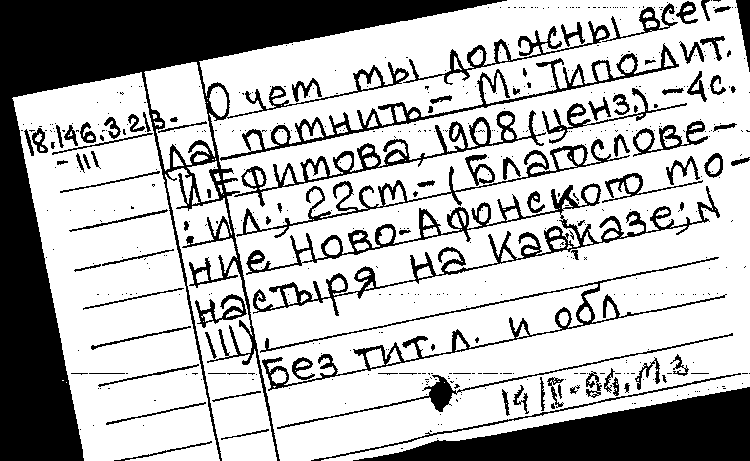 18.146.3.213-
-111
О чем ты должны всег-
да помнить.- М.: Типо-лит.
И.Ефимова, 1908 (ценз.). -4с.
: ил.; 22см.- (Благослове-
ние Ново-Афонского мо-
настыря на Кавказе; N
111).
Без тит. л. и обл.
14/II-84. М.З